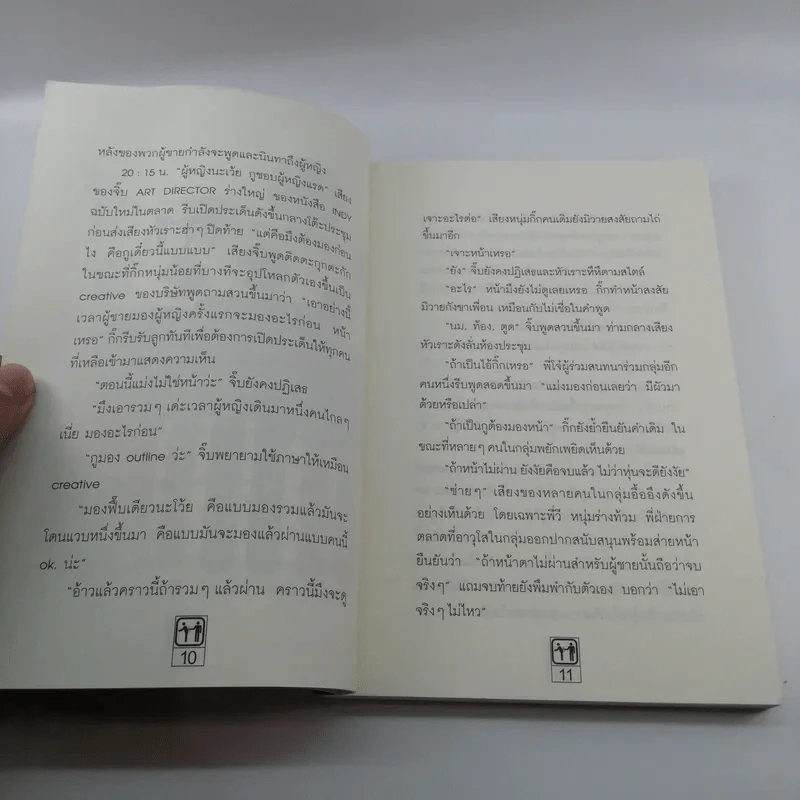 หลังของพวกผู้ชายกำลังจะพูดและนินทาถึงผู้หญิง
20 : 15 น. “ผู้หญิงนะเว้ย กูชอบผู้หญิงแรด” เสียง
ของจิ๊บ ART DIRECTOR ร่างใหญ่ ของหนังสือ INDY
ฉบับใหม่ในตลาด รีบเปิดประเด็นดังขึ้นกลางโต๊ะประชุม
ก่อนส่งเสียงหัวเราะฮ่าๆ ปิดท้าย “แต่คือมึงต้องมองก่อน
ไง คือกูเดี๋ยวนี้แบบแบบ” เสียงจิ๊บพูดติดตะกุกตะกัก
ในขณะที่กิ๊กหนุ่มน้อยที่บางทีจะอุปโหลกตัวเองขึ้นเป็น
creative ของบริษัทพูดถามสวนขึ้นมาว่า “เอาอย่างนี้
เวลาผู้ชายมองผู้หญิงครั้งแรกจะมองอะไรก่อน หน้า
เหรอ” กิ๊กรีบรับลูกทันทีเพื่อต้องการเปิดประเด็นให้ทุกคน
ที่เหลือเข้ามาแสดงความเห็น
“ตอนนี้แม่งไม่ใช่หน้าว่ะ” จิ๊บยังคงปฏิเสธ
“มึงเอารวมๆ เด่ะเวลาผู้หญิงเดินมาหนึ่งคนไกลๆ
เนี่ย มองอะไรก่อน”
“กูมอง outline ว่ะ” จิ๊บพยายามใช้ภาษาให้เหมือน
creative
“มองฟึ๊บเดียวนะโว้ย คือแบบมองรวมแล้วมันจะ
โดนแวบหนึ่งขึ้นมา คือแบบมันจะมองแล้วผ่านแบบคนนี้
ok. น่ะ”
“อ้าวแล้วคราวนี้ถ้ารวมๆ แล้วผ่าน คราวนี้มึงจะดู
10
เจาะอะไรต่อ” เสียงหนุ่มกิ๊กคนเดิมยังมิวายสงสัยถามไถ่
ขึ้นมาอีก
“เจาะหน้าเหรอ”
“ยัง” จิ๊บยังคงปฏิเสธและหัวเราะหึหึตามสไตล์
“อะไร” หน้ามึงยังไม่ดูเลยเหรอ กิ๊กทำหน้าสงสัย
มิวายกังขาเพื่อน เหมือนกับไม่เชื่อในคำพูด
“นม, ท้อง, ตูด” จิ๊บพูดสวนขึ้นมา ท่ามกลางเสียง
หัวเราะดังลั่นห้องประชุม
“ถ้าเป็นไอ้กิ๊กเหรอ” พี่โจ้ผู้ร่วมสนทนาร่วมกลุ่มอีก
คนหนึ่งรีบพูดสอดขึ้นมา “แม่งมองก่อนเลยว่า มีผัวมา
ด้วยหรือเปล่า”
“ถ้าเป็นกูต้องมองหน้า” กิ๊กยังย้ำยืนยันคำเดิม ใน
ขณะที่หลายๆ คนในกลุ่มพยักเพยิดเห็นด้วย
“ถ้าหน้าไม่ผ่าน ยังงัยคือจบแล้ว ไม่ว่าหุ่นจะดียังงัย”
“ช่ายๆ” เสียงของหลายคนในกลุ่มอื้ออึงดังขึ้น
อย่างเห็นด้วย โดยเฉพาะพี่วี หนุ่มร่างท้วม พี่ฝ่ายการ
ตลาดที่อาวุโสในกลุ่มออกปากสนับสนุนพร้อมส่ายหน้า
ยืนยันว่า “ถ้าหน้าตาไม่ผ่านสำหรับผู้ชายนั้นถือว่าจบ
จริงๆ” แถมจบท้ายยังพึมพำกับตัวเอง บอกว่า “ไม่เอา
จริงๆ ไม่ไหว”
11